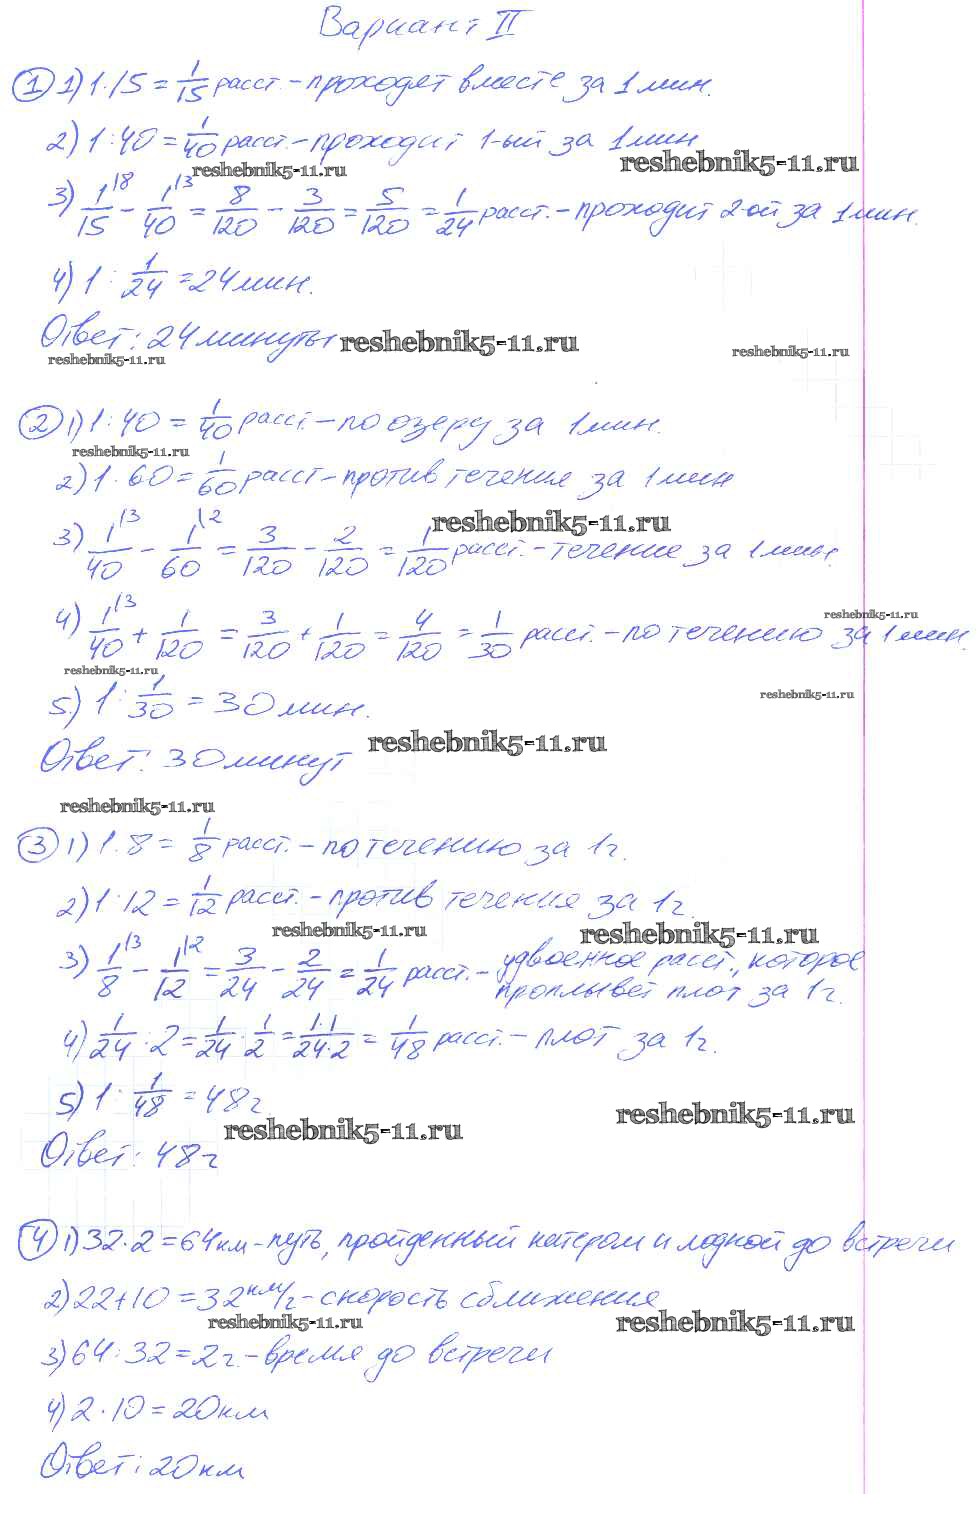 Вариант II
① 1) 1:15 = 1/15 расст. – проходят вместе за 1 мин.
2) 1:40 = 1/40 расст. – проходит 1-ый за 1 мин
reshebnik5-11.ru
reshebnik5-11.ru
3) 1/15 |8 – 1/40 |3 = 8/120 – 3/120 = 5/120 = 1/24 расст. – проходит 2-ой за 1 мин.
4) 1 : 1/24 = 24 мин.
Ответ: 24 минуты
reshebnik5-11.ru
reshebnik5-11.ru
reshebnik5-11.ru
② 1) 1:40 = 1/40 расст. – по озеру за 1 мин.
reshebnik5-11.ru
2) 1:60 = 1/60 расст – против течения за 1 мин
reshebnik5-11.ru
3) 1/40 |3 – 1/60 |2 = 3/120 – 2/120 = 1/120 расст. – течение за 1 мин.
reshebnik5-11.ru
4) 1/40 |3 + 1/120 = 3/120 + 1/120 = 4/120 = 1/30 расст. – по течению за 1 мин.
reshebnik5-11.ru
5) 1 : 1/30 = 30 мин.
reshebnik5-11.ru
Ответ: 30 минут
reshebnik5-11.ru
reshebnik5-11.ru
③ 1) 1:8 = 1/8 расст. – по течению за 1 г.
2) 1:12 = 1/12 расст. – против течения за 1 г.
reshebnik5-11.ru
reshebnik5-11.ru
3) 1/8 |3 – 1/12 |2 = 3/24 – 2/24 = 1/24 расст. – удвоенное расст., которое
проплывет плот за 1 г.
4) 1/24 : 2 = 1/24 · 1/2 = 1·1/24·2 = 1/48 расст. – плот за 1 г.
5) 1 : 1/48 = 48 г
reshebnik5-11.ru
reshebnik5-11.ru
Ответ: 48 г
④ 1) 32·2 = 64 км – путь, пройденный катером и лодкой до встречи
2) 22+10 = 32 км/г – скорость сближения
reshebnik5-11.ru
reshebnik5-11.ru
3) 64:32 = 2 г. – время до встречи
4) 2·10 = 20 км
Ответ: 20 км